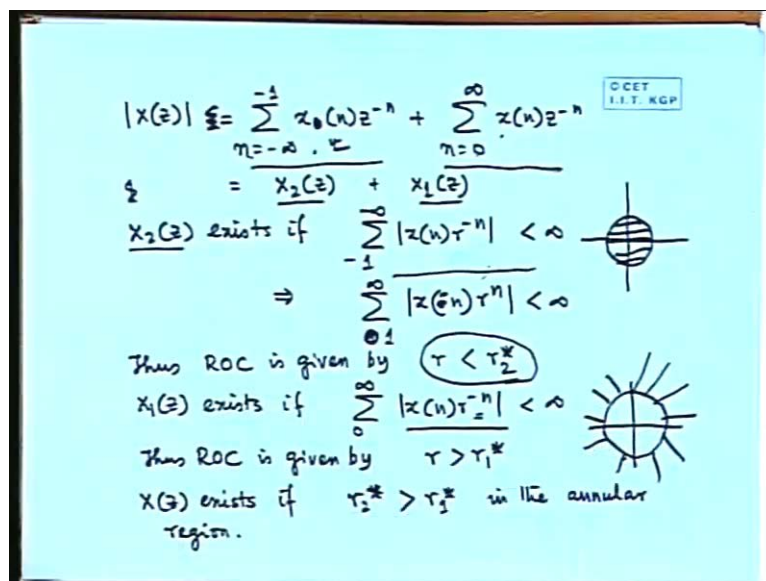 © CET
I.I.T. KGP
|X(z)| ≤= ∑_{n=-∞}^{-1} x(n)z^{-n} + ∑_{n=0}^{∞} x(n)z^{-n}
= X₂(z) + X₁(z)
X₂(z) exists if ∑_{-1}^{-∞} |x(n)r^{-n}| < ∞
⇒ ∑_{1}^{∞} |x(-n)r^{n}| < ∞
Thus ROC is given by r < r₂*
X₁(z) exists if ∑_{0}^{∞} |x(n)r^{-n}| < ∞
Thus ROC is given by r > r₁*
X(z) exists if r₂* > r₁* in the annular
region.